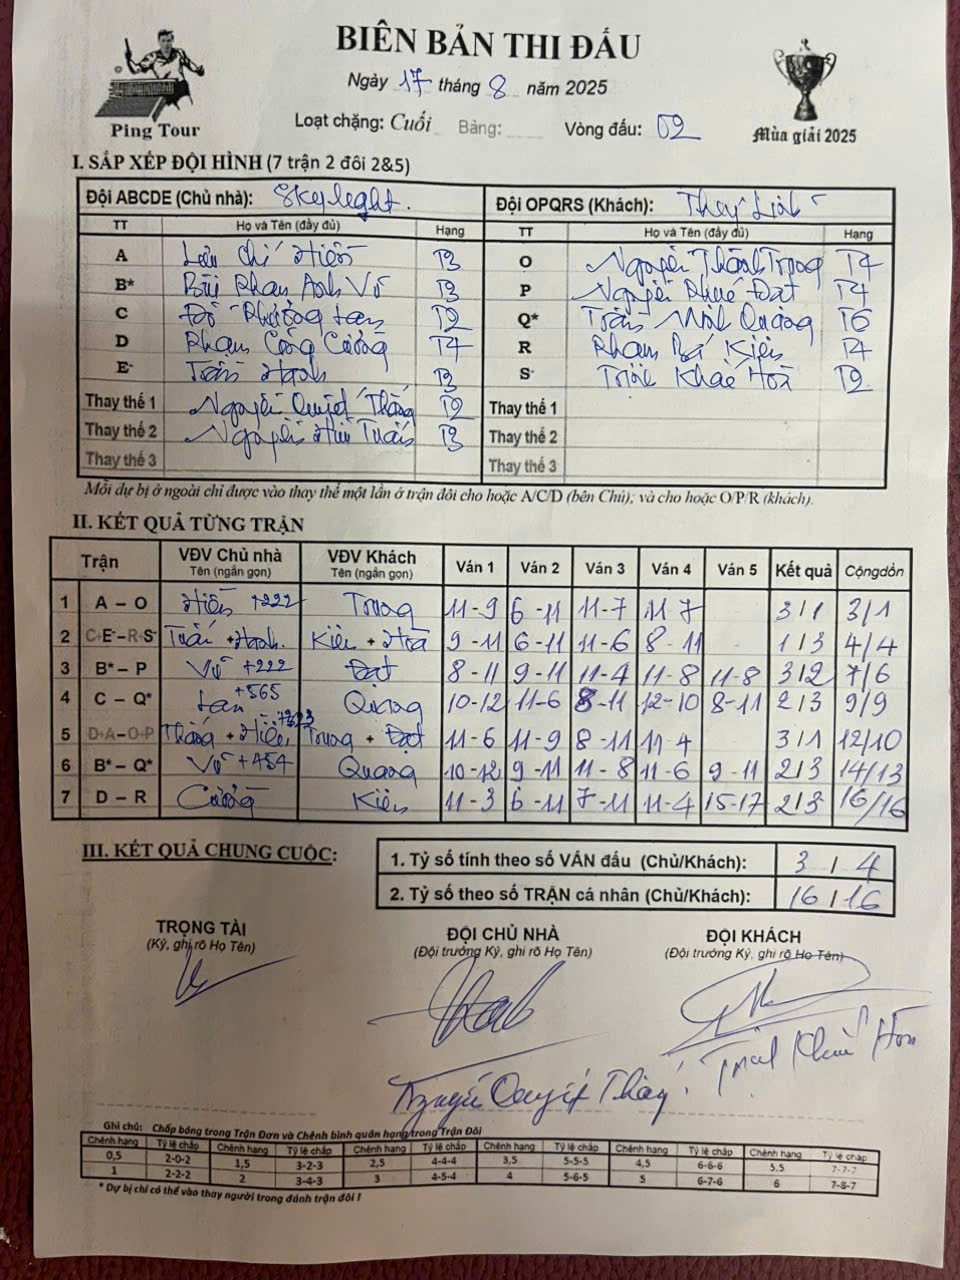 BIÊN BẢN THI ĐẤU
Ngày 17 tháng 8 năm 2025
Ping Tour
Loạt chặng: Cuối Bảng: Vòng đấu: 02
Mùa giải 2025
I. SẮP XẾP ĐỘI HÌNH (7 trận 2 đôi 2&5)
Đội ABCDE (Chủ nhà): Skyleght. Đội OPQRS (Khách): Thuỷ Linh
TT Họ và Tên (đầy đủ) Hạng TT Họ và Tên (đầy đủ) Hạng
A Lưu Chí Hiền T3 O Nguyễn Thành Trung T4
B* Bùi Phan Anh Vũ T3 P Nguyễn Đạt T4
C Đỗ Phương Lan T2 Q* Trần Minh Quang T6
D Phạm Công Cường T4 R Phạm Bá Kiên T4
E- Trần Hạnh T3 S- Hoà T2
Thay thế 1 Nguyễn Quyết Thắng T2 Thay thế 1
Thay thế 2 Nguyễn Hữu Tuấn T3 Thay thế 2
Thay thế 3 Thay thế 3
Mỗi dự bị ở ngoài chỉ được vào thay thế một lần ở trận đôi cho hoặc A/C/D (bên Chủ); và cho hoặc O/P/R (khách).
II. KẾT QUẢ TỪNG TRẬN
Trận VĐV Chủ nhà Tên (ngắn gọn) VĐV Khách Tên (ngắn gọn) Ván 1 Ván 2 Ván 3 Ván 4 Ván 5 Kết quả Cộng dồn
1 A – O Hiền +222 Trung 11-9 6-11 11-7 11-7 3/1 3/1
2 C+E-–R+S- Tuấn + Hạnh. Kiên + Hoà 9-11 6-11 11-6 8-11 1/3 4/4
3 B* – P Vũ +222 Đạt 8-11 9-11 11-4 11-8 11-8 3/2 7/6
4 C – Q* Lan +565 Quang 10-12 11-6 8-11 12-10 8-11 2/3 9/9
5 D+A–O+P Thắng + Hiền Trung + Đạt 11-6 11-9 8-11 11-4 3/1 12/10
6 B* – Q* Vũ +454 Quang 10-12 9-11 11-8 11-6 9-11 2/3 14/13
7 D – R Cường Kiên 11-3 6-11 7-11 11-4 15-17 2/3 16/16
III. KẾT QUẢ CHUNG CUỘC:
1. Tỷ số tính theo số VÁN đấu (Chủ/Khách): 3 / 4
2. Tỷ số theo số TRẬN cá nhân (Chủ/Khách): 16 / 16
TRỌNG TÀI ĐỘI CHỦ NHÀ ĐỘI KHÁCH
(Ký, ghi rõ Họ Tên) (Đội trưởng Ký, ghi rõ Họ Tên) (Đội trưởng Ký, ghi rõ Họ Tên)
Nguyễn Quyết Thắng
Ghi chú: Chấp bóng trong Trận Đơn và Chênh bình quân hạng trong Trận Đôi
Chênh hạng Tỷ lệ chấp Chênh hạng Tỷ lệ chấp Chênh hạng Tỷ lệ chấp Chênh hạng Tỷ lệ chấp Chênh hạng Tỷ lệ chấp Chênh hạng Tỷ lệ chấp
0,5 2-0-2 1,5 3-2-3 2,5 4-4-4 3,5 5-5-5 4,5 6-6-6 5,5 7-7-7
1 2-2-2 2 3-4-3 3 4-5-4 4 5-6-5 5 6-7-6 6 7-8-7
* Dự bị chỉ có thể vào thay người trong đánh trận đôi !